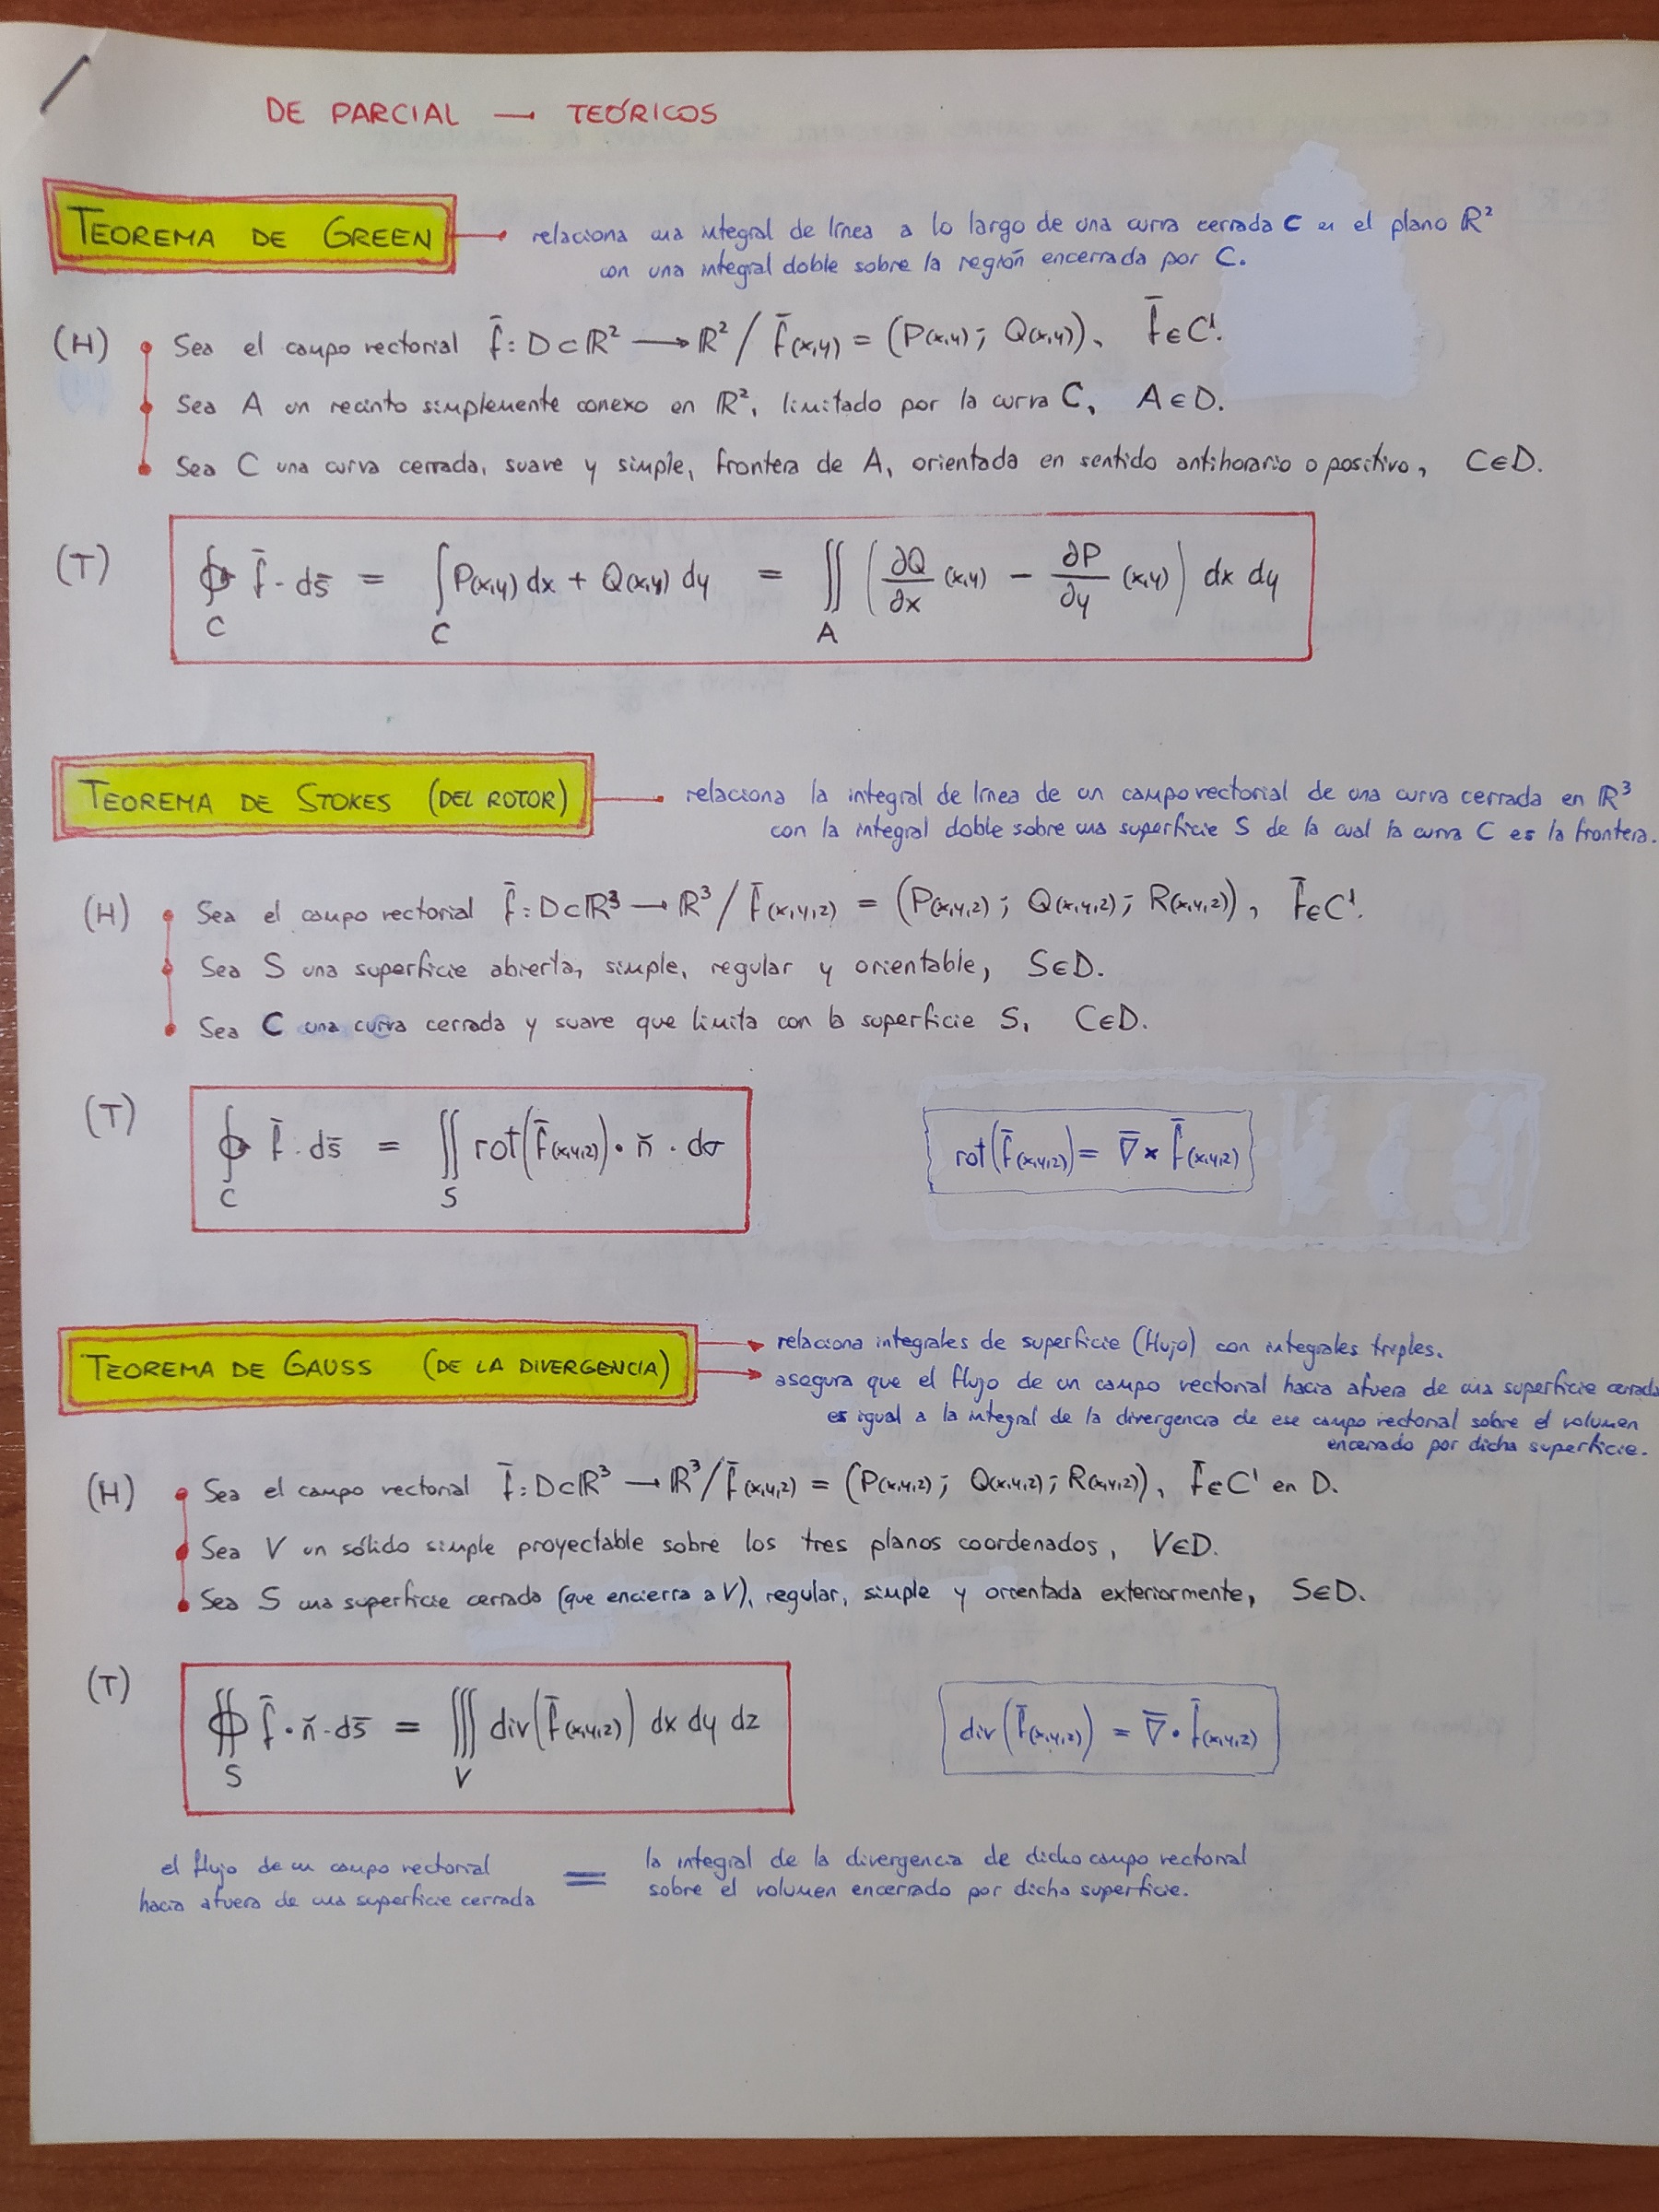 DE PARCIAL → TEÓRICOS
TEOREMA DE GREEN → relaciona una integral de línea a lo largo de una curva cerrada C en el plano ℝ²
con una integral doble sobre la región encerrada por C.
(H) • Sea el campo vectorial f̄: D⊂ℝ² → ℝ² / f̄(x,y) = (P(x,y); Q(x,y)), f̄∈C¹.
• Sea A un recinto simplemente conexo en ℝ², limitado por la curva C, A∈D.
• Sea C una curva cerrada, suave y simple, frontera de A, orientada en sentido antihorario o positivo, C∈D.
(T) ∮_C f̄ · ds̄ = ∫_C P(x,y) dx + Q(x,y) dy = ∬_A (∂Q/∂x (x,y) − ∂P/∂y (x,y)) dx dy
TEOREMA DE STOKES (DEL ROTOR) → relaciona la integral de línea de un campo vectorial de una curva cerrada en ℝ³
con la integral doble sobre una superficie S de la cual la curva C es la frontera.
(H) • Sea el campo vectorial f̄: D⊂ℝ³ → ℝ³ / f̄(x,y,z) = (P(x,y,z); Q(x,y,z); R(x,y,z)), f̄∈C¹.
• Sea S una superficie abierta, simple, regular y orientable, S∈D.
• Sea C una curva cerrada y suave que limita con la superficie S, C∈D.
(T) ∮_C f̄ · ds̄ = ∬_S rot(f̄(x,y,z)) · ň · dσ rot(f̄(x,y,z)) = ∇̄ × f̄(x,y,z)
TEOREMA DE GAUSS (DE LA DIVERGENCIA) → relaciona integrales de superficie (flujo) con integrales triples.
→ asegura que el flujo de un campo vectorial hacia afuera de una superficie cerrada
es igual a la integral de la divergencia de ese campo vectorial sobre el volumen
encerrado por dicha superficie.
(H) • Sea el campo vectorial f̄: D⊂ℝ³ → ℝ³ / f̄(x,y,z) = (P(x,y,z); Q(x,y,z); R(x,y,z)), f̄∈C¹ en D.
• Sea V un sólido simple proyectable sobre los tres planos coordenados, V∈D.
• Sea S una superficie cerrada (que encierra a V), regular, simple y orientada exteriormente, S∈D.
(T) ∯_S f̄ · ň · ds̄ = ∭_V div(f̄(x,y,z)) dx dy dz div(f̄(x,y,z)) = ∇̄ · f̄(x,y,z)
el flujo de un campo vectorial = la integral de la divergencia de dicho campo vectorial
hacia afuera de una superficie cerrada sobre el volumen encerrado por dicha superficie.